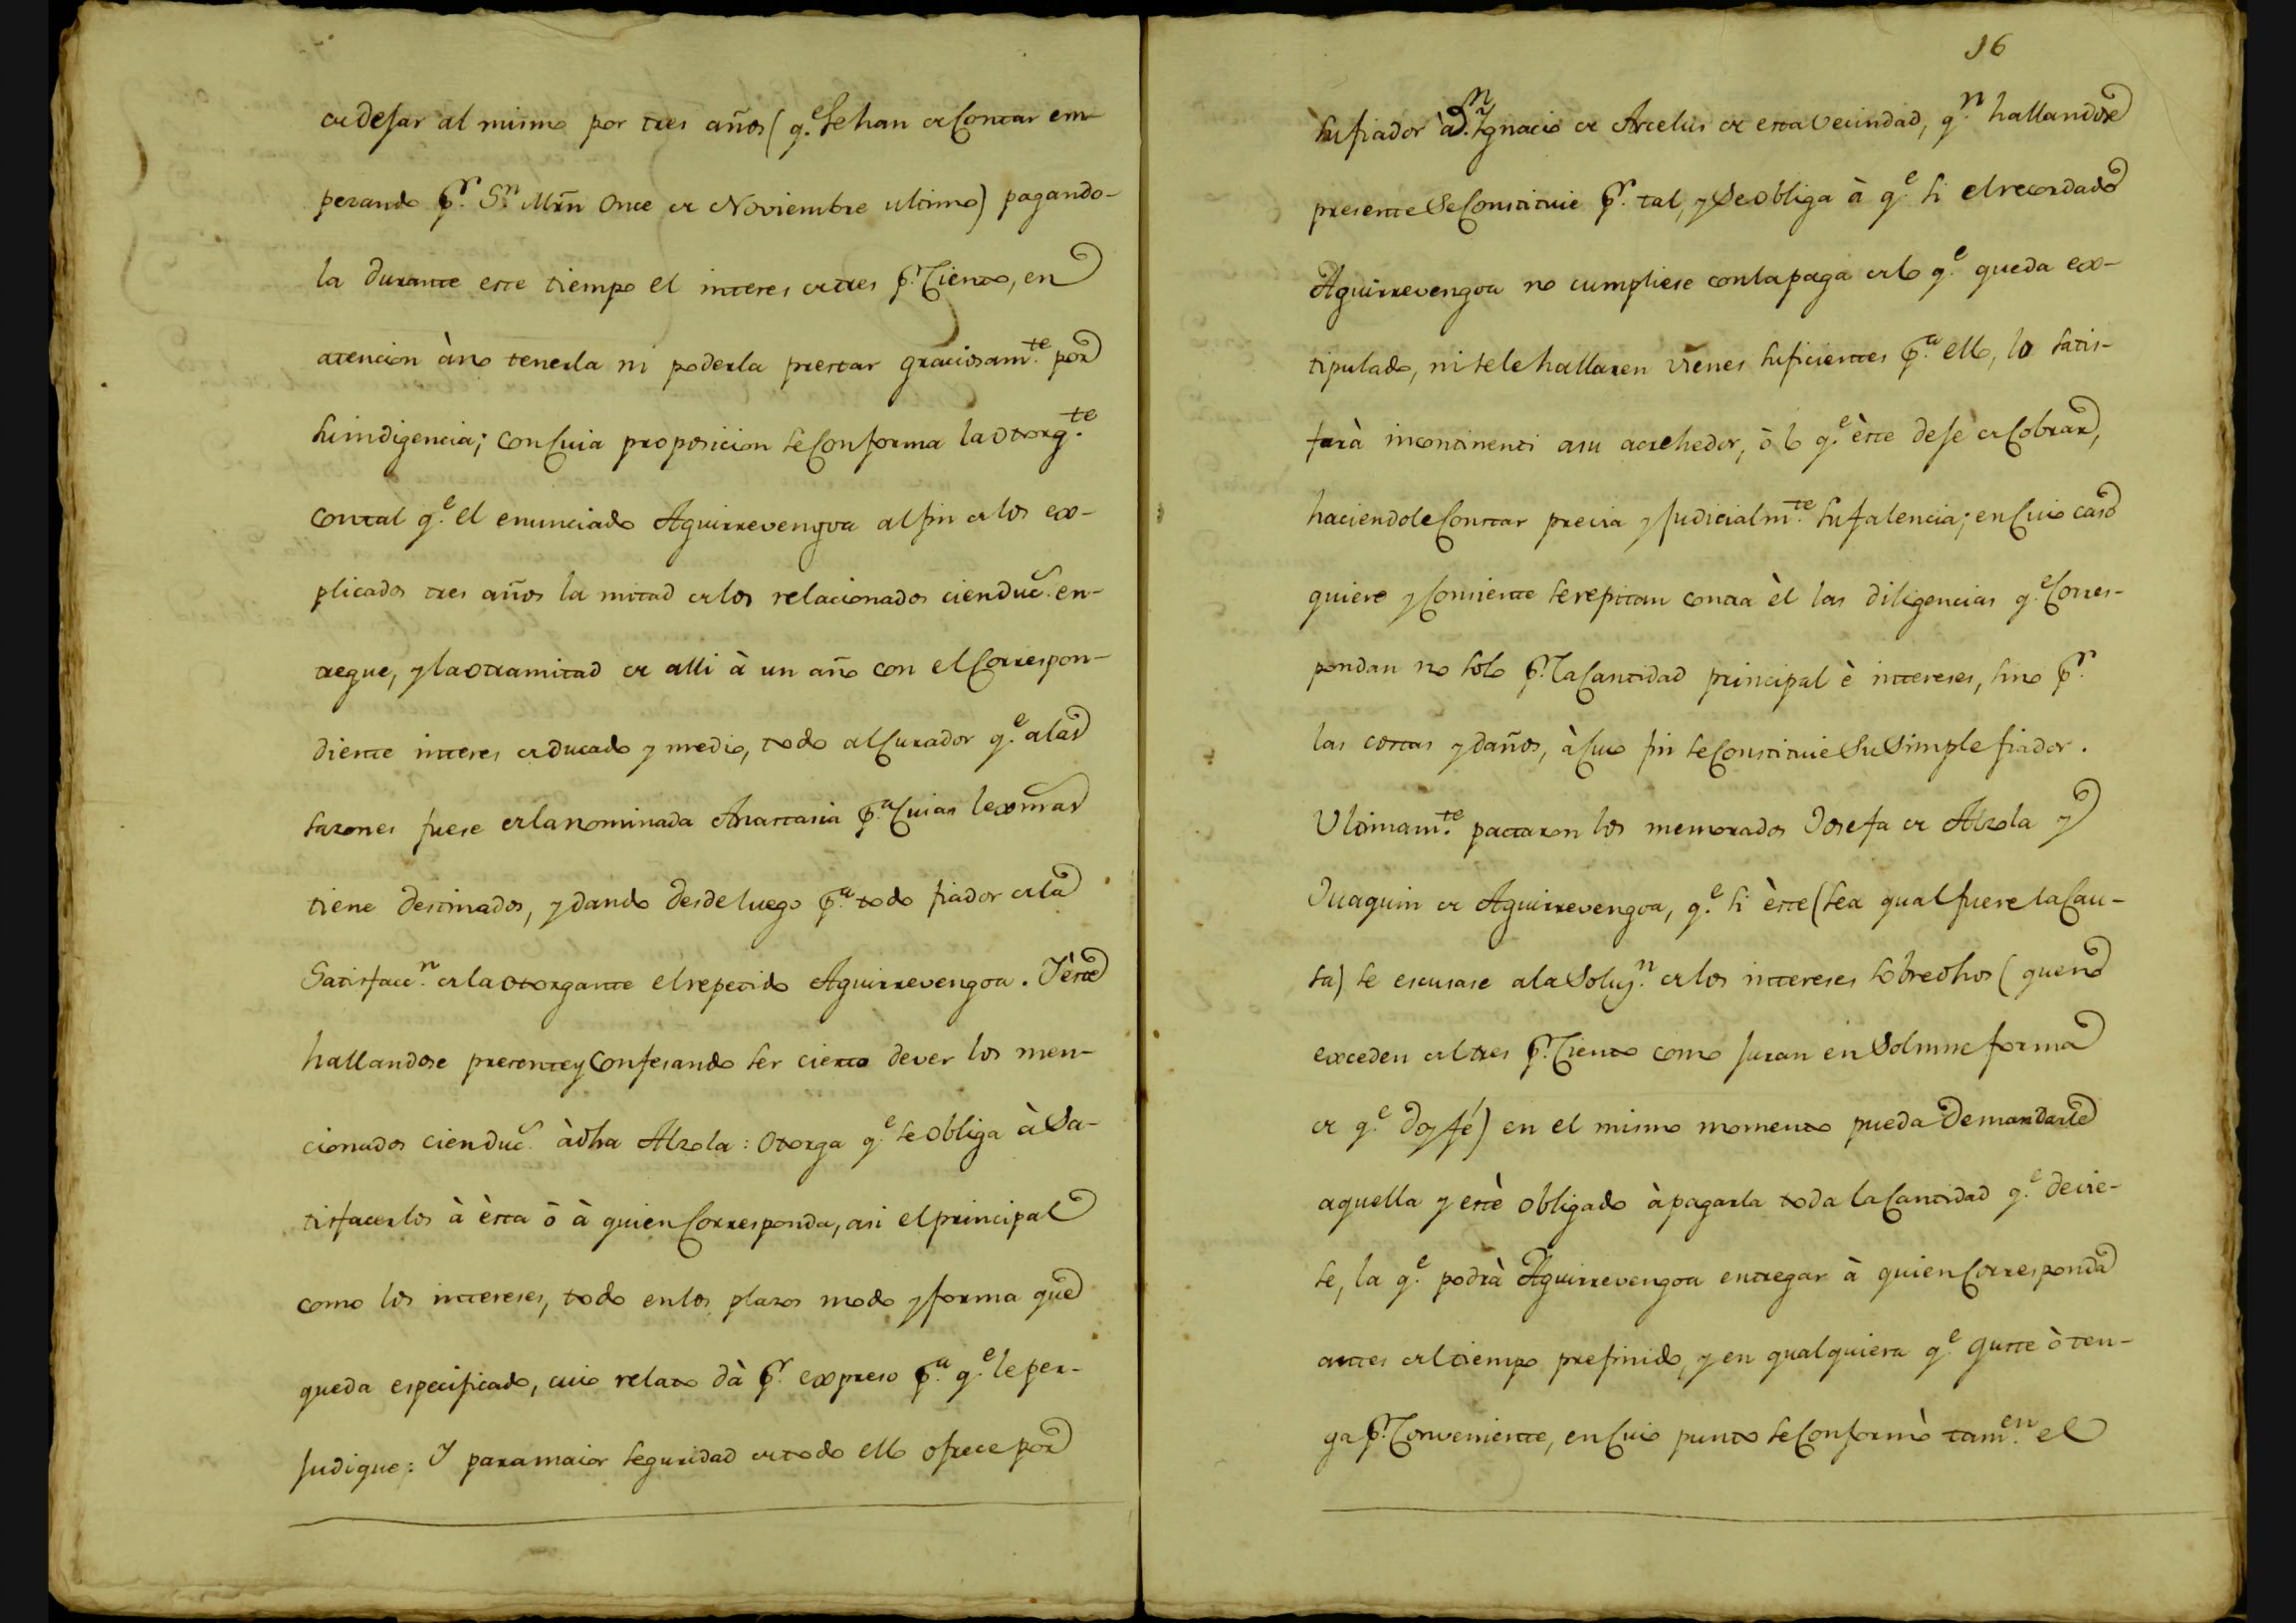 de dejar al mismo por tres años (q.e se han de Contar em-
pezando p.r S.n Mrñ Once de Noviembre ultimo) pagando-
la durante este tiempo el interes de tres p.r Ciento, en
atencion à no tenerla ni poderla prestar graciosam.te por
su indigencia; con Cuia proposicion se Conforma la otorg.te
con tal q.e el enunciado Aguirrevengoa al fin de los ex-
plicados tres años la mitad de los relacionados cien duc.s en-
tregue, y la otra mitad de alli à un año con el Correspon-
diente interes de ducado y medio, todo al Curador q.e a las
sazones fuese de la nominada Anastasia p.a Cuias lexmas
tiene destinados, y dando desde luego p.a todo fiador de la
Satisfacc.n de la otorgante el repetido Aguirrevengoa. I èste
hallandose presente y Confesando ser cierto dever los men-
cionados cien duc.s à dha Alzola: Otorga q.e se obliga à Sa-
tisfacerlos à èsta ò à quien Corresponda, asi el principal
como los intereses, todo en los plazos modo y forma que
queda especificado, cuio relato dà p.r expreso p.a q.e le per-
judique: I para maior seguridad de todo ello ofrece por
16
su fiador à D.n Ignacio de Arcelus de esta Vecindad, q.n hallandose
presente Se Constituie p.r tal, y Se obliga à q.e si el recordado
Aguirrevengoa no cumpliese con la paga de lo q.e queda ex-
tipulado, ni se le hallaren vienes suficientes p.a ello, lo satis-
farà incontinenti a su acrehedor, ò lo q.e èste dejè de Cobrar,
haciendole Constar previa y judicialm.te su falencia; en Cuio caso
quiere y Consiente se repitan contra èl las diligencias q.e Corres-
pondan no solo p.r la Cantidad principal è intereses, sino p.r
las costas y daños, à Cuio fin se Constituie Su Simple fiador.
Ultimam.te pactaron los memorados Josefa de Alzola y
Juaquin de Aguirrevengoa, q.e si èste (sea qual fuere la Cau-
sa) se escusase a la Soluz.n de los intereses sobredhos (que no
exceden del tres p.r Ciento como juran en Solemne forma
de q.e doy fé) en el mismo momento pueda Demandarle
aquella y estè obligado à pagarla toda la Cantidad q.e devie-
se, la q.e podrà Aguirrevengoa entregar à quien Corresponda
antes del tiempo prefinido, y en qualquiera q.e guste ò ten-
ga p.r Conveniente, en Cuio punto se Conformò tam.en el